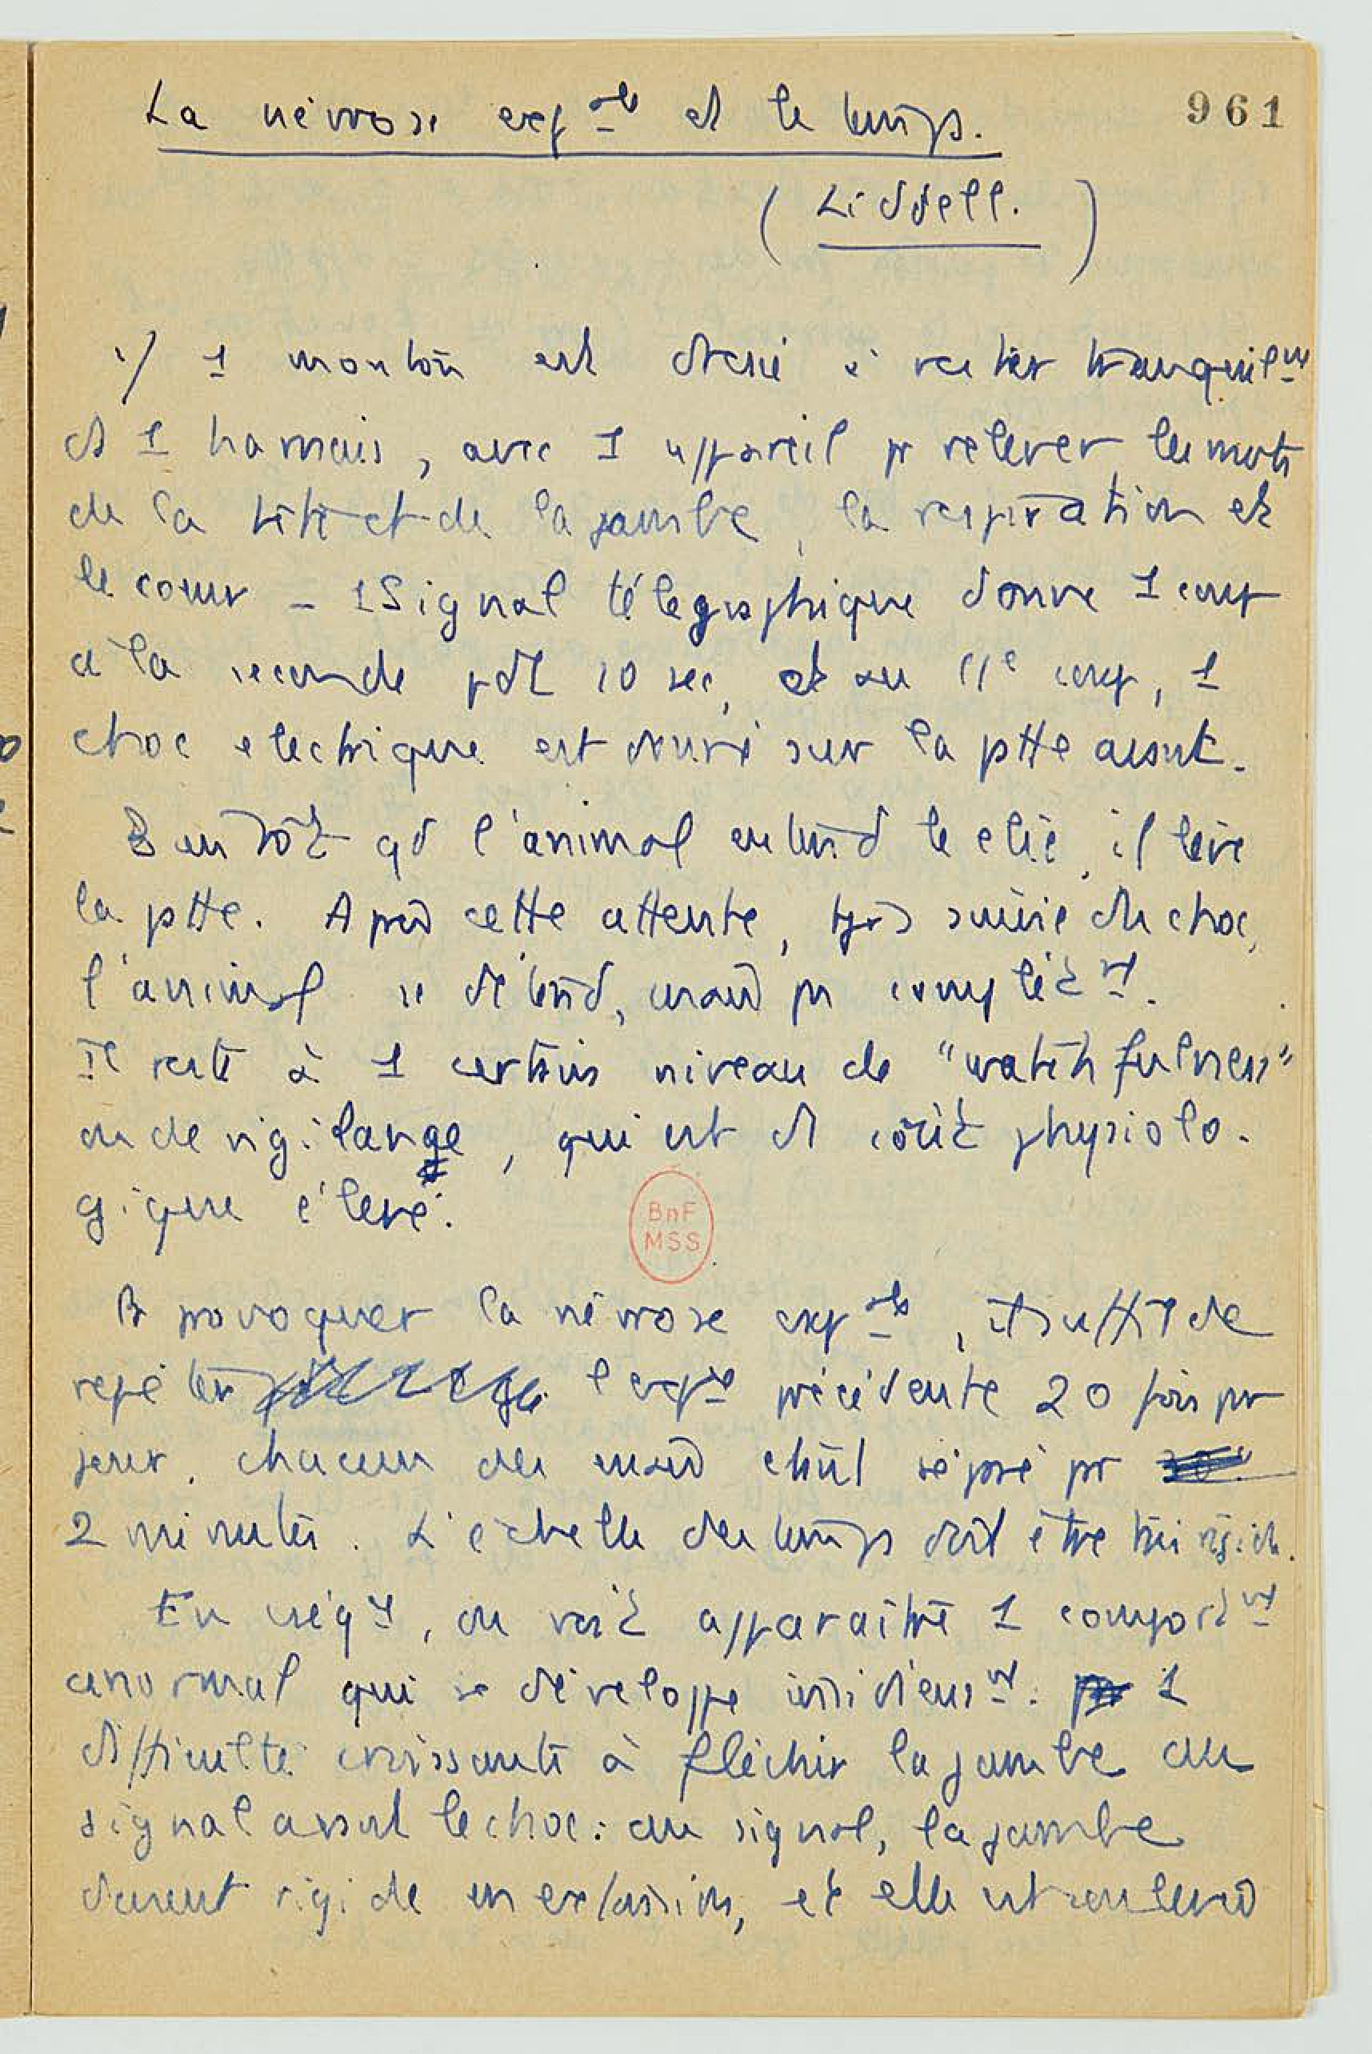 961
La névrose exp^ale et le temps.
(Liddell.)
1/ 1 mouton est dressé à rester tranquil^mt
ds 1 harnais, avec 1 appareil pr relever les mvts
de la tête et de la jambe, la respiration et
le cœur – 1 Signal télégraphique donne 1 coup
à la seconde pdt 10 sec, et au 11e coup, 1
choc electrique est donné sur la ptte avant.
Bientôt qd l'animal entend le clic, il lève
la ptte. Après cette attente, tjrs suivie du choc,
l'animal se détend, mais pas complèt^mt.
Il reste à 1 certain niveau de "watchfulness"
ou de vigilance, qui est de coût physiolo-
gique élevé.
Pr provoquer la névrose exp^ale, il suffit de
répéter l'exp^ce précédente 20 fois par
jour, chacun des séparé par
2 minutes. L'échelle du temps doit être très rigide.
En cséq^ce, on voit apparaître 1 comport^mt
anormal qui se développe insidieus^mt : 1
difficulté croissante à fléchir la jambe au
signal avant le choc : au signal, la jambe
devient rigide en extension, et elle est